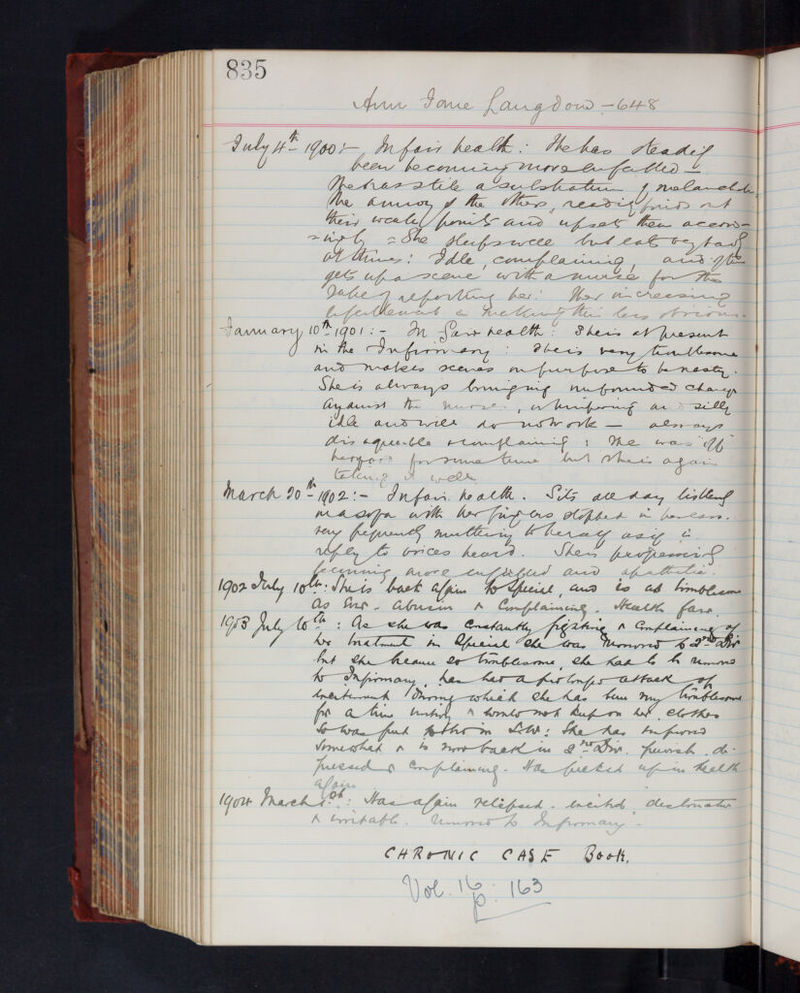 835
Ann Jane Langdon - 648
July 4th 1900:- In fair health: She has steadily
been becoming more enfeebled -
She has still a substratum of melancholia.
She annoys the others, readily finds out
their weakly points and upsets them accord-
-ingly = She sleeps well but eats very badly
at times: Idle, complaining, and often
gets up a scene with a nurse for the
sake of reporting her: Her increasing
enfeeblement is making this less obvious.
January 10th 1901:- In fair health: She is at present
in the Infirmary: She is very troublesome
and makes scenes on purpose to be nasty.
She is always bringing unfounded charges
against the nurses, whimpering and silly
idle and will do no work - always
disagreeable & complaining: She was off
her food for some time but she is again
taking it well
March 20th 1902:- In fair health. Sits all day listlessly
on a sofa with her fingers stopped in her ears.
very frequently muttering to herself as if in
reply to voices heard. She is progressively
becoming more enfeebled and apathetic.
1902 July 10th. She is back again to Special, and is as troublesome
as ever - abusive & complaining. Health fair.
1903 July 10th: As she was constantly fighting & complaining of
her treatment in Special she was removed to 2nd Div
but she became so troublesome, she had to be removed
to Infirmary, has had a prolonged attack of
excitement during which she has been very troublesome
for a time & would not keep on her clothes
so was put in She has improved
somewhat & is now back in 2nd Div. peevish, de-
pressed & complaining. Has picked up in health
again
1904 March: Has again relapsed. excited, destructive
& irritable. removed to Infirmary.
CHRONIC CASE Book.
Vol. 16 p. 163